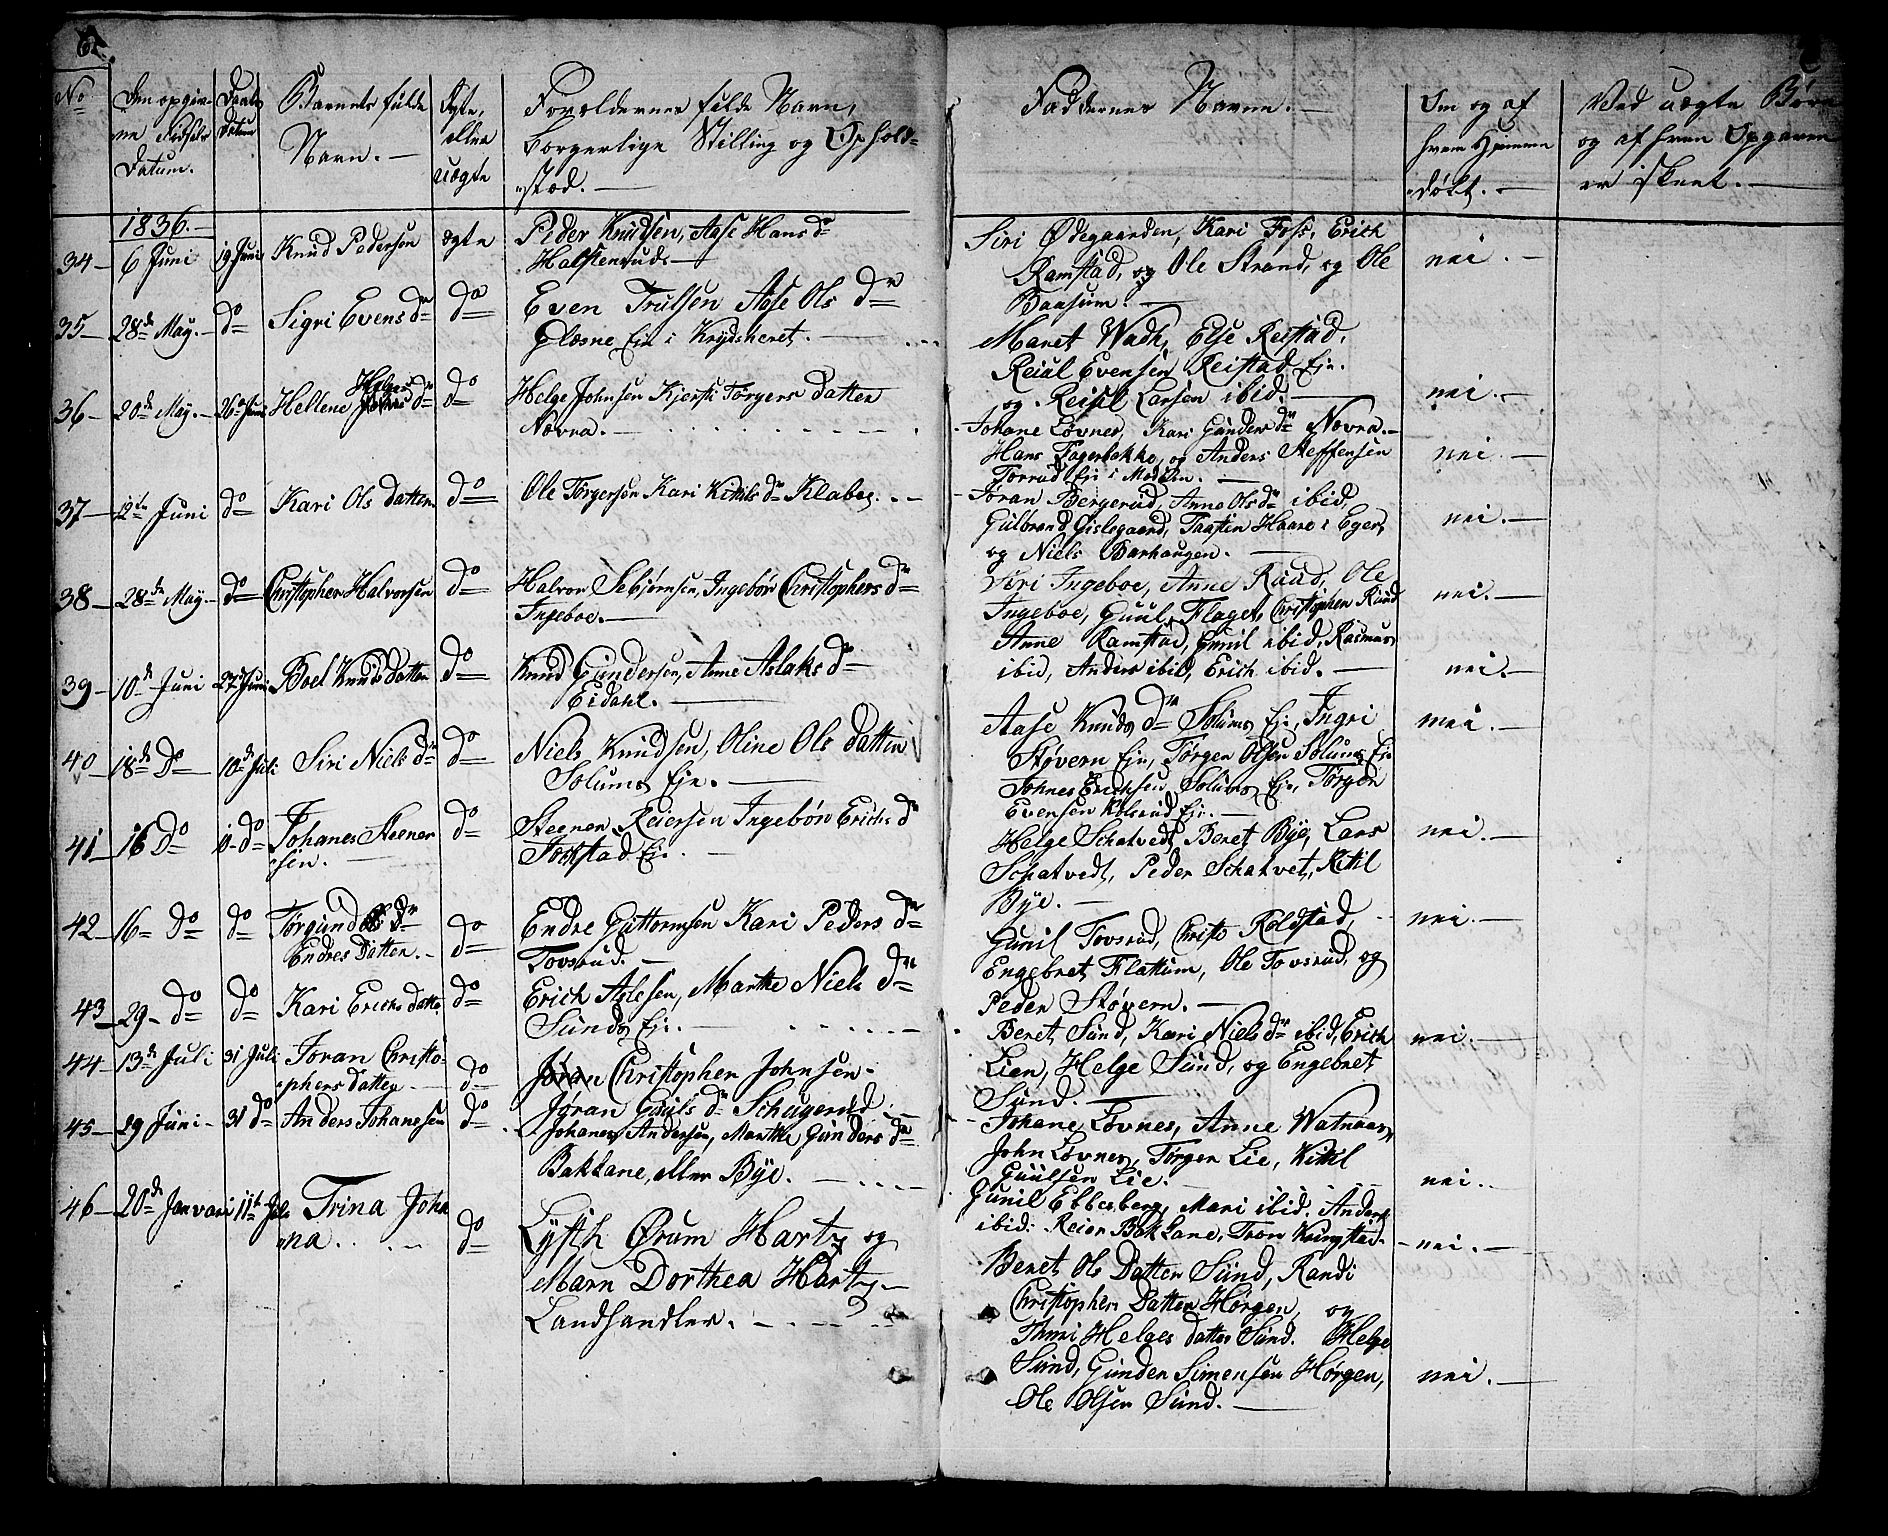 No
Den opgivne Fødsels Datum.
Daabs Datum
Barnets fulde Navn. —
Ægte, eller uægte
Forældrenes fulde Navn, borgerlige Stilling og Opholdsstæd. —
Faddernes Navne. —
Om og af hvem Hjemmedøbt. —
Ved uægte Børn og af hvem Opgaven er skeet. —
1836. —
34 — 6 Juni 19 Juni Knud Pedersen ægte Peder Knudsen, Aase Hans dr
Halstensrud. —
Siri Ødegaarden, Kari Foss, Erich
Ramstad, og Ole Strand, og Ole
Baasum. — nei. —
35 — 28de May. — do Sigri Evens dr do Even Trulsen Aase Ols dr
Glesne Eje i Krydsheret. —
Maret Wadh, Else Reistad,
Reiul Evensen Reistad Eje.
og Reiul Larsen ibid. — nei. —
36 — 20de May. — 26de Juni Hellene Helges dr do Helge Johnsen Kjersti Törgers datter
Nævra. —
Johane Løvnes, Kari Gunders dr Nævra. —
Hans Fagerbakke, og Anders Steffensen
Forrud Eje i Modum. — nei. —
37 — 12te Juni do Kari Ols datter do Ole Törgersen Kari Kittils dr Klabeg. —
Jøran Bergerud, Anne Ols dr ibid,
Gulbrand Gislegaard, Taasten Haare i Eger,
og Niels Barhaugen. — nei. —
38 — 28de May. — do Christopher Halvorsen do Halvor Sebjørnsen, Ingebør Christophers dr
Ingeboe. —
Siri Ingeboe, Anne Ruud, Ole
Ingeboe, Guul Flaget, Christopher Ruud nei. —
39 — 10de Juni 27de Juni Boel Knuds datter do Knud Gundersen, Anne Aslaks dr
Eidahl. —
Anne Ramstad, Gunil ibid, Rasmus
ibid, Anders ibid, Erich ibid. — nei. —
40 — 18de Do 10de Juli Siri Niels dr do Niels Knudsen, Oline Ols datter
Solums Eje. —
Aase Knuds dr Solums Eje, Ingri
Støvern Eje, Törger Olsen Solums Eje
Johnes Erichsen Solums Eje, Törger
Evensen Kolsrud Eje. — nei. —
41 — 16 Do 10 do Johanes Steener
sen. — do Steener Reiersen Ingebør Erichs dr
Sockstad Eje. —
Helge Schatvedt, Beret Bye, Lars
Schatvedt, Peder Schatvet, Kittil
Bye. — nei. —
42 — 16 Do do Törgund dr
Endres Datter. — do Endre Guttormsen Kari Peders dr
Tovsrud. —
Gunil Tovsrud, Christi Roldstad,
Engebret Flattum, Ole Tovsrud, og
Peder Støvern. — nei. —
43 — 29 — Do do Kari Erichs datter do Erich Aslesen, Marthe Niels dr
Sunds Eje. —
Beret Sund, Kari Niels dr ibid, Erich
Lien, Helge Sund, og Engebret
Sund. — nei. —
44 — 13de Juli 31 Juli Joran Christo
phers datter. — do Jøran Christopher Johnsen.
Jøran Guuls dr Schugerud. —
Johane Løvnes, Anne Watnaas,
John Løvnes, Törger Lie, Kittil
Guulsen Lie. — nei. —
45 — 29 Juni — 31 do Anders Johanesen do Johanes Andersen, Marthe Gunders dr
Baklane, eller Bye. —
Gunil Ebbesberg, Mari ibid. Anders
ibid. Reier Baklane, Tron Kringstad. — nei. —
46 — 20de Januari 11te Juli Trina Joha
na. — do Lysth Ørum Hartz og
Marn Dorthea Hartz. —
Landhandler. —
Beret Ols Datter Sund, Randi
Christopher Datter Hørgen, og
Thuri Helges datter Sund. Helge
Sund, Gunder Simensen Hørgen,
Ole Olsen Sund. — nei. —